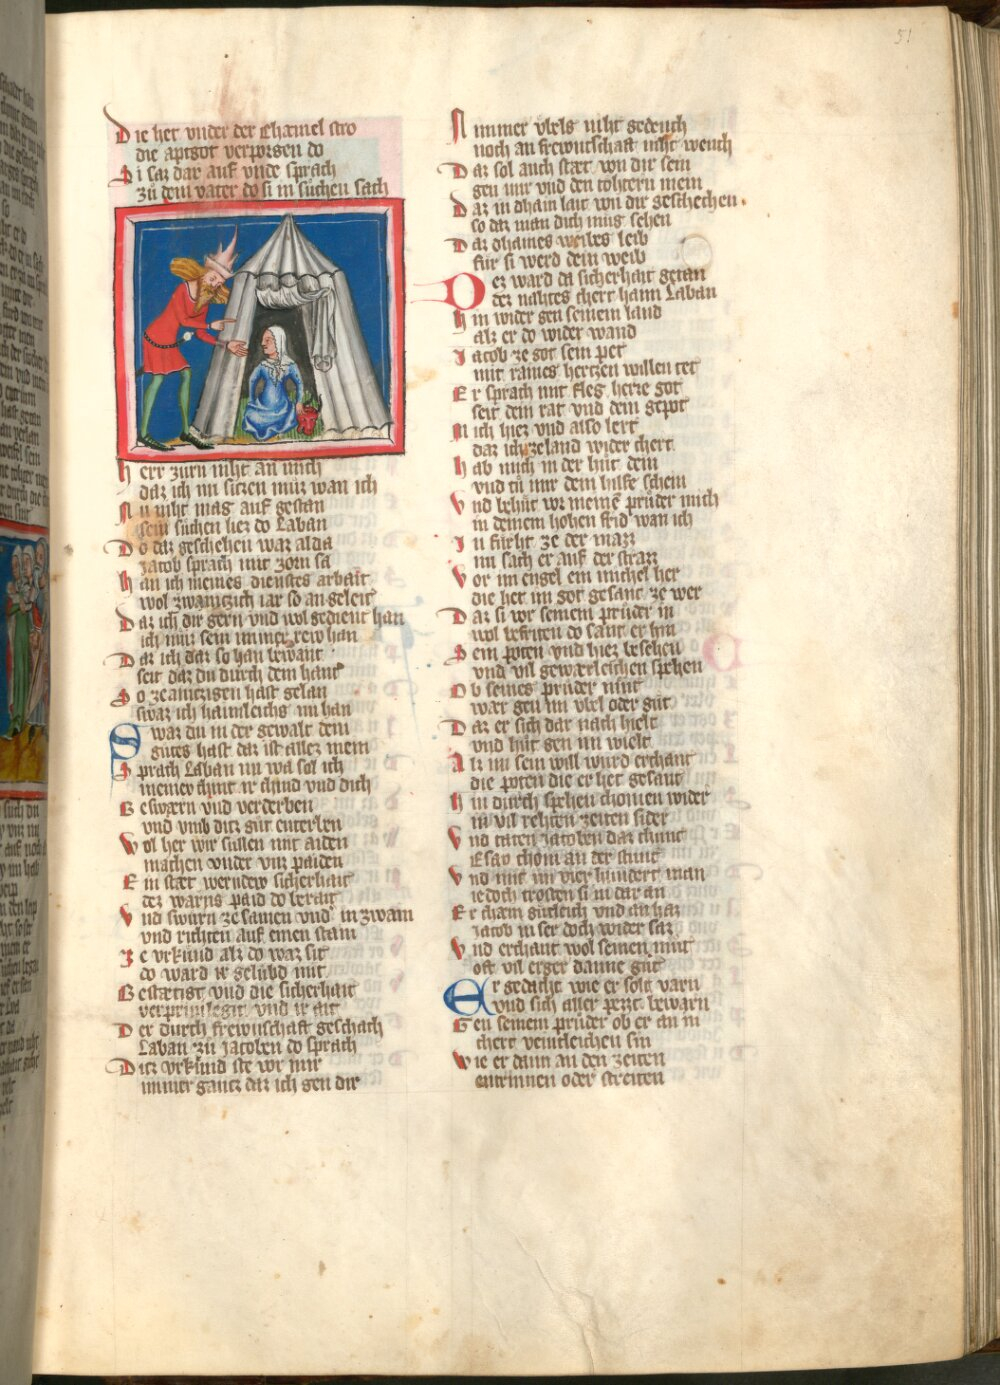 51
Die het vnder der Chæmel stro
die aptgot verporgen do
Si saz dar auf vnde sprach
zů dem vater do si in sůchen sach
herr zürn niht an mich
daz ich nu sitzen můz wan ich
Nu niht mag auf gestan
sein süchen liez do Laban
Do daz geschehen waz alda
Jacob sprach mit zorn sa
han ich meines dienstes arbait
wol zwaintzich iar so an geleit
Daz ich dir gern vnd wol gedient han
ich muz sein immer rew han
Daz ich daz so han bewant
seit daz du durch dem hant
So ze aintzigen hast gelan
swaz ich haimleichs nu han
Swaz du in der gewalt dein
gůtes hast daz ist allez mein
Sprach Laban nu wa sol ich
meinev chint ir chind vnd dich
Beswærn vnd verderben
vnd vmb ditz gůt enterben
Wol her wir süllen mit aiden
machen vnder vnz paiden
Ein stæt werndew sicherhait
dez warns paid do berait
Vnd swůrn ze samen vnd in zwain
vnd richten auf einen stain
Ze vrkünd alz do waz sit
do ward ir gelübd mit
Bestætigt vnd die sicherhait
verpriuilegit vnd ir ait
Der durch frewntschaft geschach
Laban zů Jacoben do sprach
Ditz vrkünd ste vor mir
immer gantz daz ich gen dir
Nimmer vbels niht gedench
noch an frewntschaft niht wench
Daz sol auch stæt von dir sein
gen mir vnd den töhtern mein
Daz in dhain lait von dir geschechen
so daz man dich müg sehen
Daz dhaines weibes leib
für si werd dein weib
Dez ward da sicherhait getan
dez nahtes chert hann Laban
hin wider gen seinem land
alz er do wider wand
Jacob ze got sein pet
mit raines hertzen willen tet
Er sprach mit fleg herre got
seit dein rat vnd dein gepot
Mich hiez vnd also lert
daz ich ze land wider chert
hab mich in der hůt dein
vnd tů mir dein hilfe schein
Vnd behůt vor meinē prüder mich
in deinem hohen frid wan ich
In fürht ze der mazz
nu sach er auf der strazz
Vor im engel ein michel her
die het im got gesant ze wer
Daz si vor seinem prüder in
wol befriten do sant er hin
Sein poten vnd hiez besehen
vnd vil gewærleichen spehen
Ob seines prüder můt
wær gen im vbel oder gůt
Daz er sich dar nach hielt
vnd hůt gen im wielt
Alz im sein will wurd erchant
die poten die er het gesant
hin durch spehen chomen wider
in vil rehten zeiten sider
Vnd taten Jacoben daz chunt
Esav chom an der stunt
Vnd mit im vier hundert man
iedoch trosten si in dar an
Er chæm gůtleich vnd an haz
Jacob in ser doch wider saz
Vnd erchant wol seinen můt
oft vil erger danne gůt
Er gedacht wie er solt varn
vnd sich aller perst bewarn
Gen seinem prüder ob er an in
chert veintleichen sin
Wie er dann an den zeiten
entrinnen oder streiten